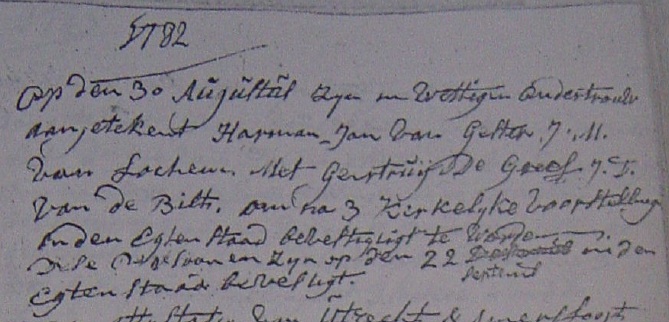 1782
Op den 30 Augustus zyn in Wettigen Ondertrouw
aangetekent Harman-Jan Van Gelter. J. M.
Van Lochem. Met Geertruij De Greef. J. D.
Van de Bilt. om na 3 Kerkelyke Voorstelling
in den Egten Staad bevestigigt te Worden
Dese Persoonen Zyn op den 22 in den
Septemb
Egten Staad bevestigt.
Van Utrecht & Amersfoort